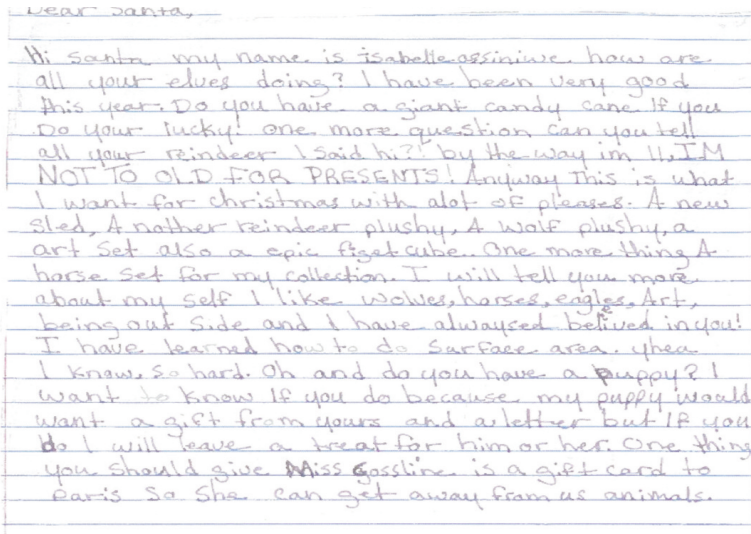 Dear Santa,
Hi Santa my name is isabelle assiniwe how are
all your elves doing? I have been very good
this year. Do you have a giant candy cane If you
Do your lucky! One more question can you tell
all your reindeer I said hi?! by the way im 11, IM
NOT TO OLD FOR PRESENTS! Anyway This is what
I want for christmas with alot of pleases. A new
sled, A nother reindeer plushy, A wolf plushy, a
art set also a epic figet cube. One more thing A
horse set for my collection. I will tell you more
about my self I like wolves, horses, eagles, Art,
being out side and I have alwaysed belived in you!
I have learned how to do surface area. yhea
I know, so hard. Oh and do you have a puppy? I
want to know If you do because my puppy would
want a gift from yours and a letter but If you
do I will leave a treat for him or her. One thing
you should give Miss Gossline is a gift card to
paris so she can get away from us animals.